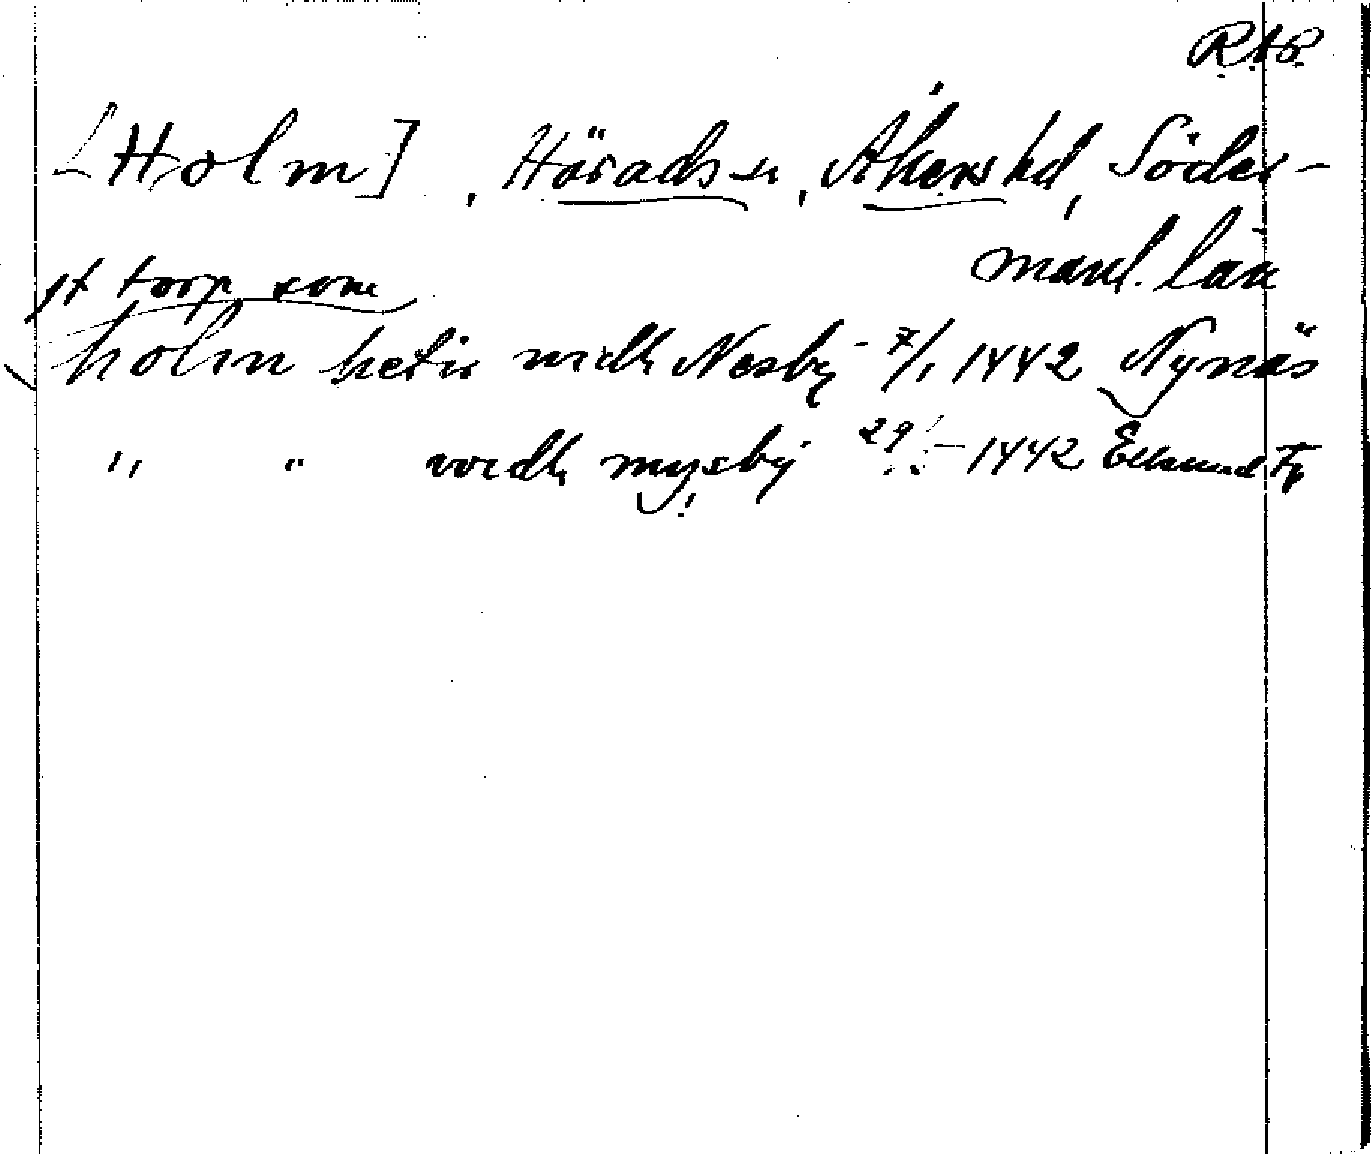 RAP.
[Holm], Härads sn, Åkers hd, Söder-
manl. län
jt torp som
holm hetir widh Nesby - 7/1 1442 Nynäs
" " vordh mysby 29/ - 1442 Eklund Fp